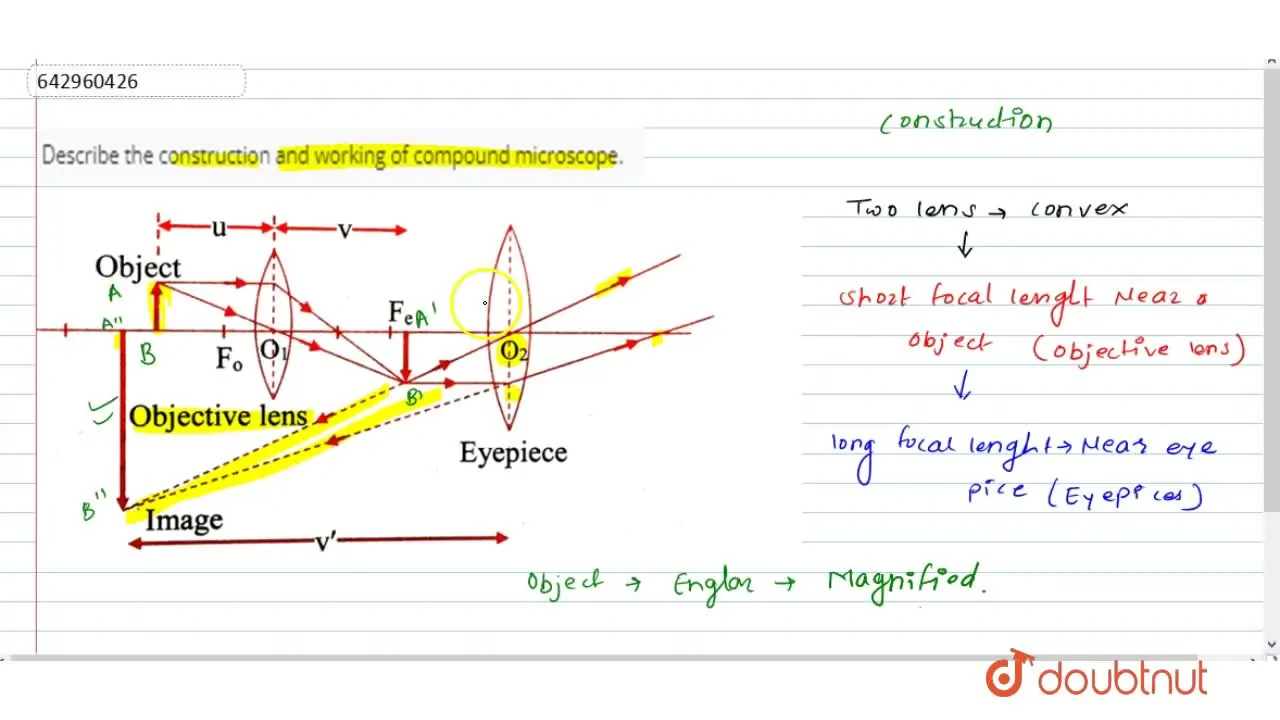 642960426
construction
Describe the construction and working of compound microscope.
Two lens → convex
u
v
Object
A
short focal lenght Near
object (objective lens)
Fe A'
A"
B
Fo
O1
O2
B'
Objective lens
long focal lenght → Near eye
pice (Eyepices)
Eyepiece
B"
Image
v'
object → Englar → Magnified.
doubtnut